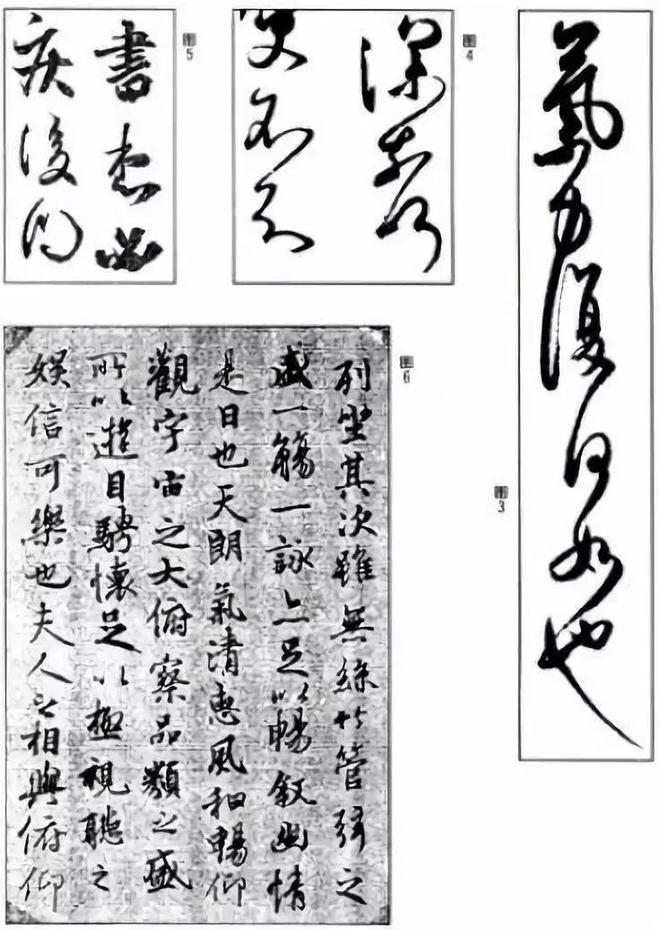 氣力復何如也
圖3
深
圖4
不
書
疾後
圖5
列坐其次雖無絲竹管弦之
盛一觴一詠亦足以暢敘幽情
是日也天朗氣清惠風和暢仰
觀宇宙之大俯察品類之盛
所以遊目騁懷足以極視聽之
娛信可樂也夫人之相與俯仰
圖6